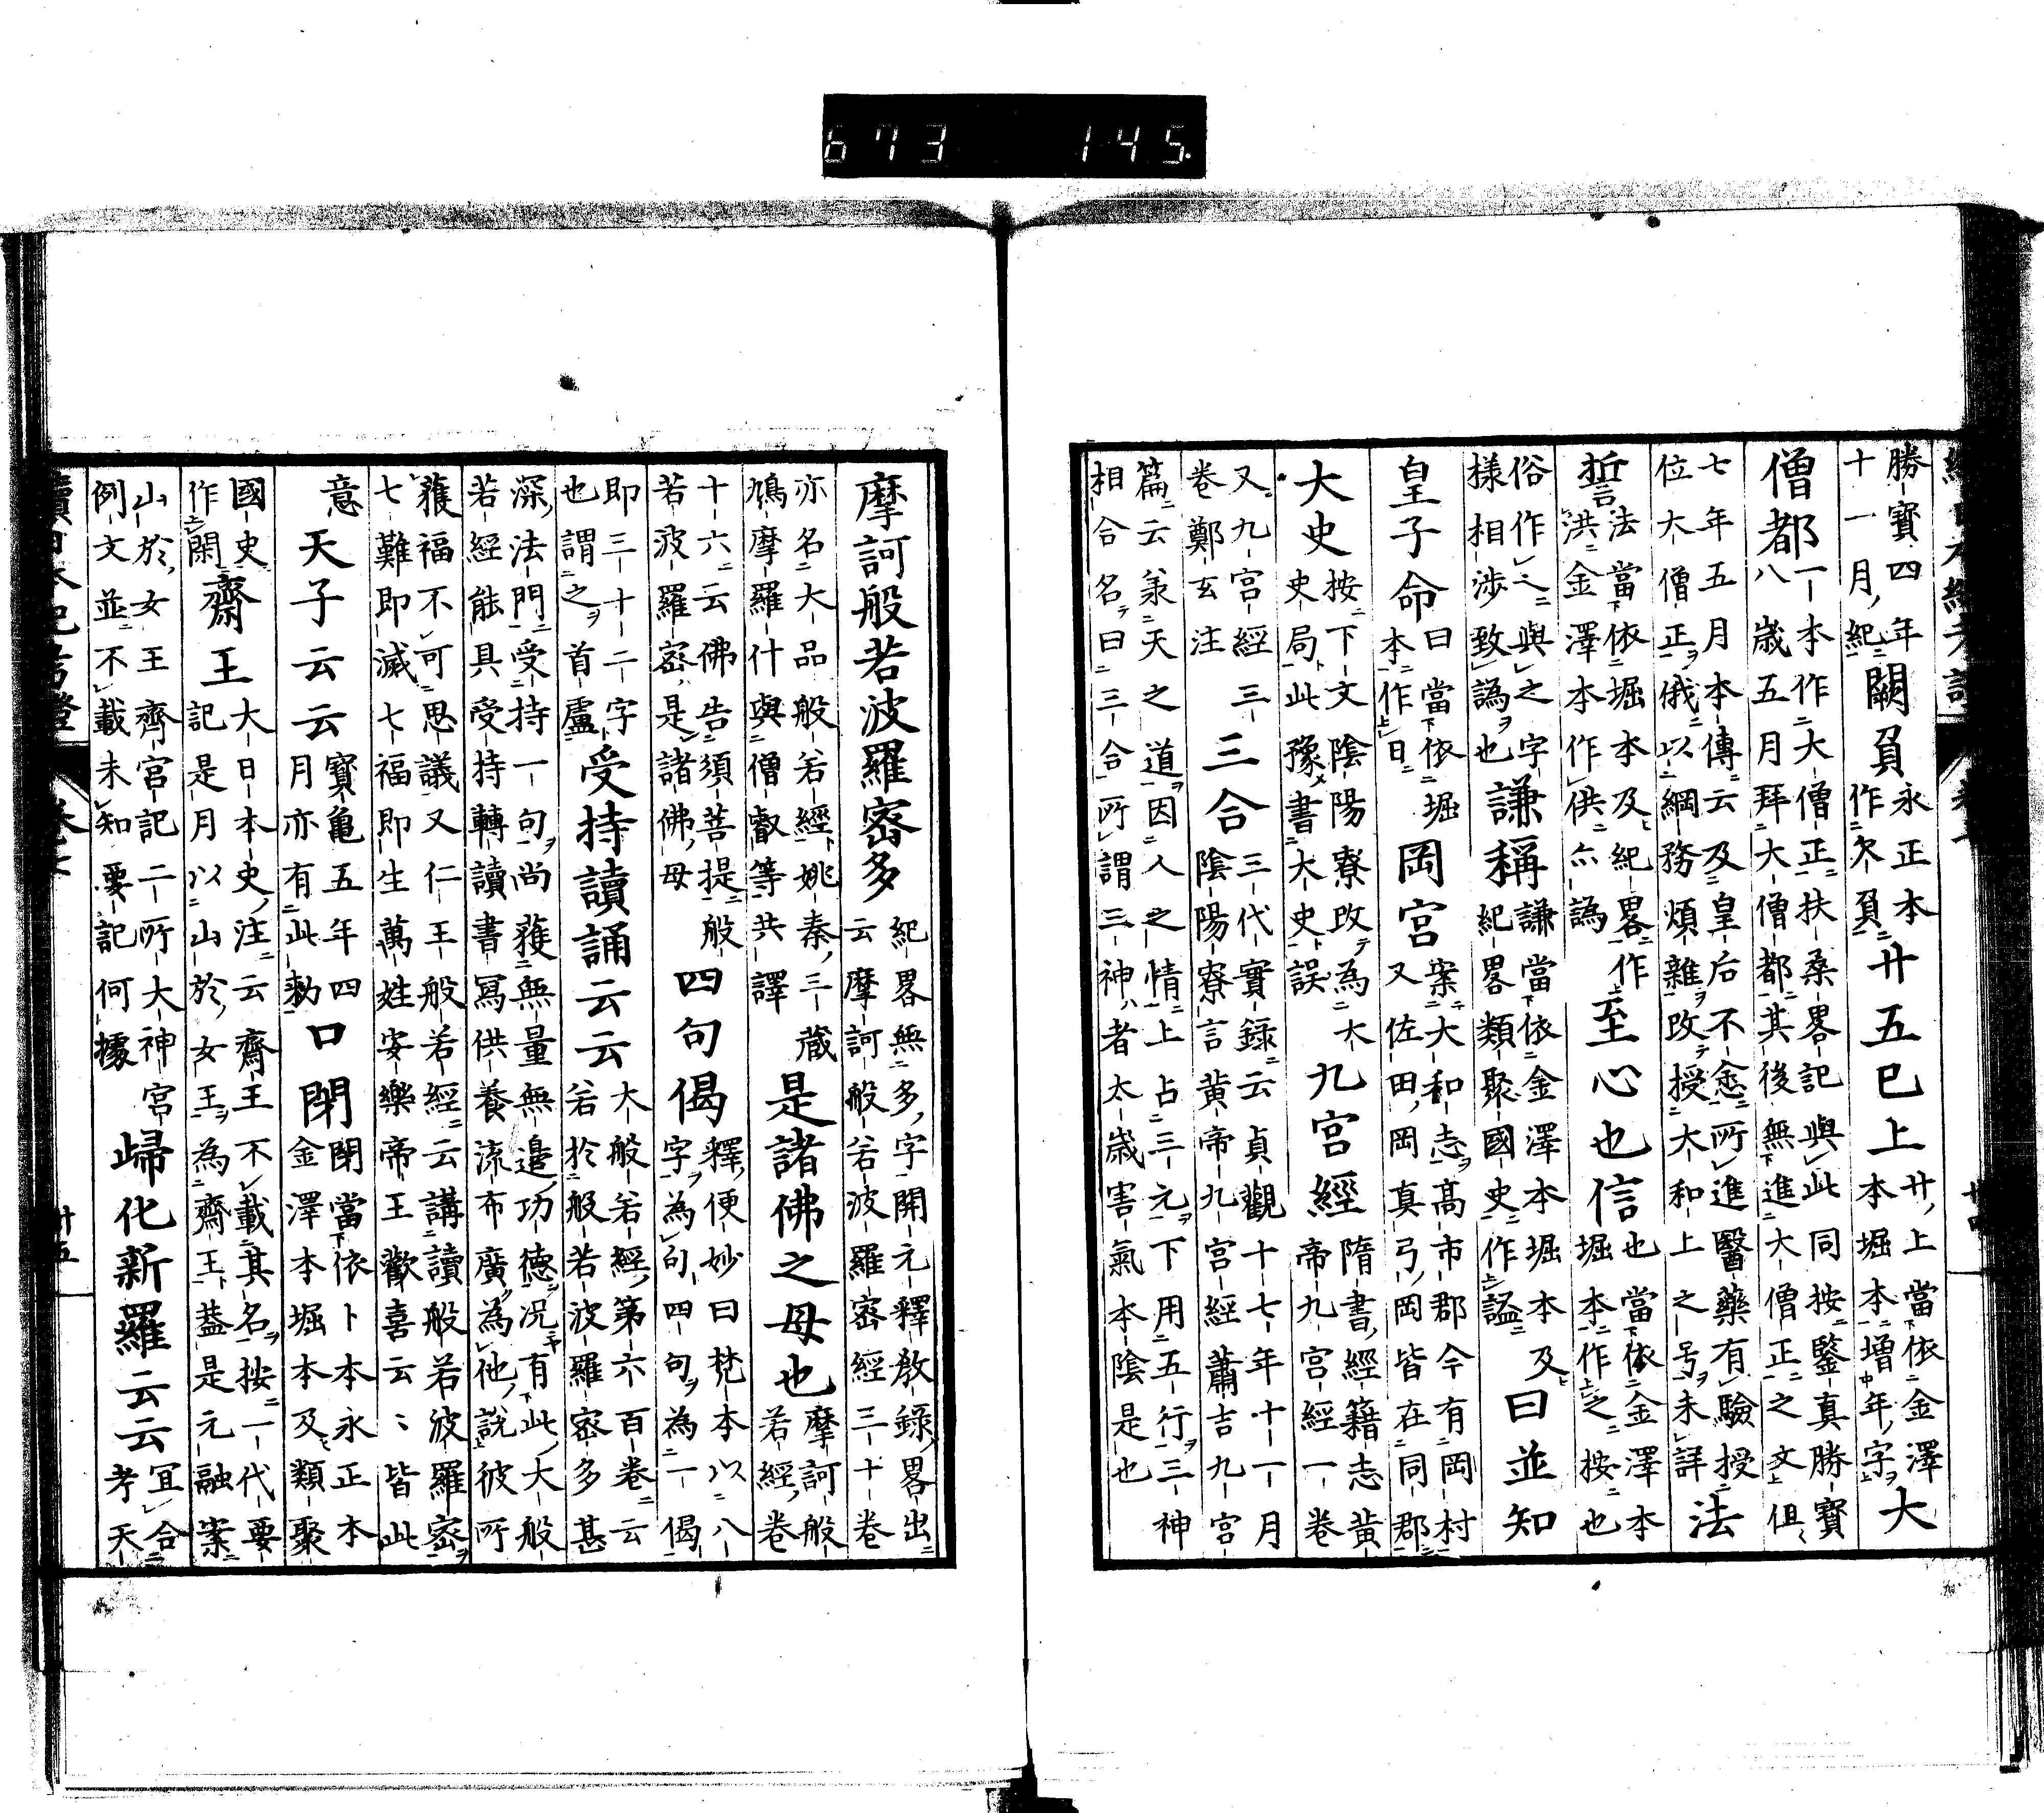 673 145
勝寶四年
十一月紀
闕員
永正本
作欠員
廿五巳上
廿上當依金澤
本堀本増年字
大
僧都
一本作大僧正扶桑畧記與此同按鑒真勝寶
八歳五月拜大僧都其後無進大僧正之文但
七年五月本傳云及皇后不悆所進醫藥有驗授
位大僧正俄以綱務煩雜改授大和上之号未詳
法
誓
法當依堀本及紀畧作
洪金澤本作供亦譌
至心也信
也當依金澤本
堀本作之按也
俗作〻與之字
様相渉致譌也
謙稱
謙當依金澤本堀本及
紀畧類聚國史作謚
曰並知
皇子命
曰當依堀
本作日
岡宮
案大和志髙市郡今有岡村
又佐田岡真弓岡皆在同郡
大史
按下文陰陽寮改為大
史局此豫書大史誤
九宮經
隋書經籍志黃
帝九宮經一卷
又九宮經三
卷鄭玄注
三合
三代實録云貞觀十七年十一月
陰陽寮言黄帝九宮經蕭吉九宮
篇云承天之道因人之情上占三元下用五行三神
相合名曰三合所謂三神者太歳害氣本陰是也
摩訶般若波羅宻多
紀畧無多字開元釋教録畧出
云摩訶般若波羅宻經三十卷
亦名大品般若經姚秦三藏
鳩摩羅什與僧叡等共譯
是諸佛之母也
摩訶般
若經卷
十六云佛告須菩提般
若波羅宻是諸佛母
四句偈
釋便妙曰梵本以八
字為句四句為一偈
即三十二字
也謂之首盧
受持讀誦云云
大般若經第六百卷云
若於般若波羅宻多甚
深法門受持一句尚獲無量無邉功德况有此大般
若經能具受持轉讀書冩供養流布廣為他説彼所
獲福不可思議又仁王般若經云講讀般若波羅宻
七難即滅七福即生萬姓安樂帝王歡喜云〻皆此
意
天子云云
寶亀五年四
月亦有此勅
口閇
閇當依卜本永正本
金澤本堀本及類聚
國史
作閑
齋王
大日本史注云齋王不載其名按一代要
記是月以山於女王為齋王葢是元融案
山於女王齊宮記二所大神宮
例文並不載未知要記何據
歸化新羅云云
冝合
考天
續日本紀考證
廿五